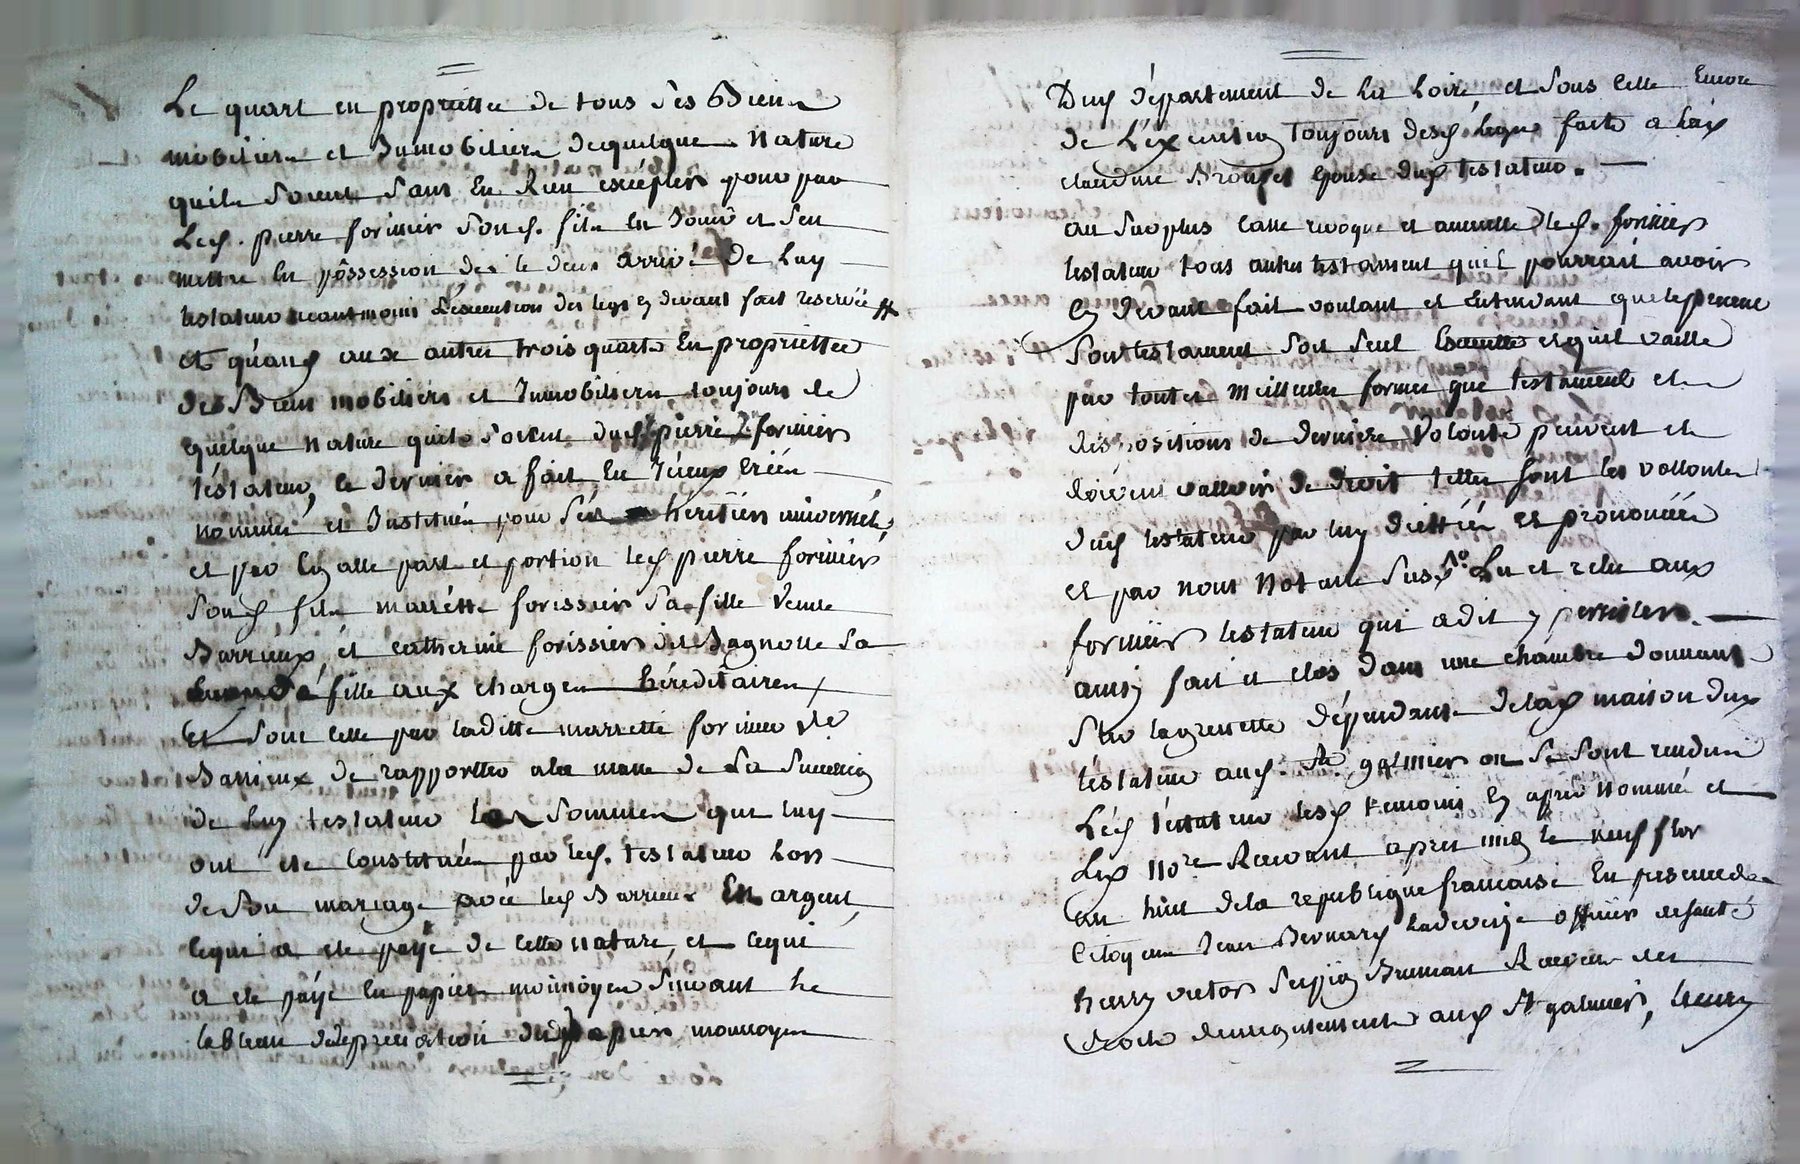 Le quart en propriettée de tous ses Biens
mobiliers et Immobiliers de quelque Nature
quils soient sans En Rien excépter pour par
Led. pierre forissier sond. fils En Jouir et sen
mettre En pôssession dès le deces arrivé de Luy
testateur neantmoins L'éxecution des legs cy devant fait reservée #
et quand aux autres trois quarts En propriettée
des Biens mobiliers et Immôbiliers toujours de
quelque nature quils soient dud. pierre forissier
téstateur, ce dernier a fait En Iceux Créér
nommé et Institué pour ses héritiers universéls
et par Egalle part et portion led pierre forissier
Sond fils mariétte forissier sa fille veuve
Barrieux, et Catherine forissier dit Bagnolle sa
fille aux charges héréditaires,
Et sous celle par laditte mariette forissier ve
Barrieux de rapportter a la masse de La Succession
de Luy testateur les sommes que luy
ont été Constituées par led. testateur Lors
de son mariage avec led Barrieux En argent
cequi a été payé de cette nature, et cequi
a été payé En papier monnoyes suivant le
tableau de depreciation du papier monnoyes
Dud département de La Loire et sous celle Encore
de L'éxecution toujours desd legs faits a Lad
claudine Brousset Epouse dud testateur.
au surplus casse revoque et annulle led. forissier
testateur tous autres testaments quil pourrait avoir
Cy devant fait voulant et Entendant que le present
Son testament soit seul Executté et quil vaille
par toutes meilleures formes que testament et
dispositions de derniere Volonté peuvent et
doivent valloir de droit telles sont les vollontés
dud testateur par luy dicttées et prononcées
et par nous Notaire susd. Lu et relu aux
forissier testateur qui a dit y persister.
ainsy fait et clos dans une chambre donnant
sur la grenette dépendante de lad maison dud
téstateur aud. St. galmier ou se sont rendus
Léd téstateur lesd temoins cy après Nommés et
Led No.re Recevant apres midy le neuf flor
an huit de la republique francaise En presence de
Citoyens Jean Bernard Ladevèze officier de santé
henry victor Brumant Receveur des
Droits d'enregistrement aud St galmier, henry